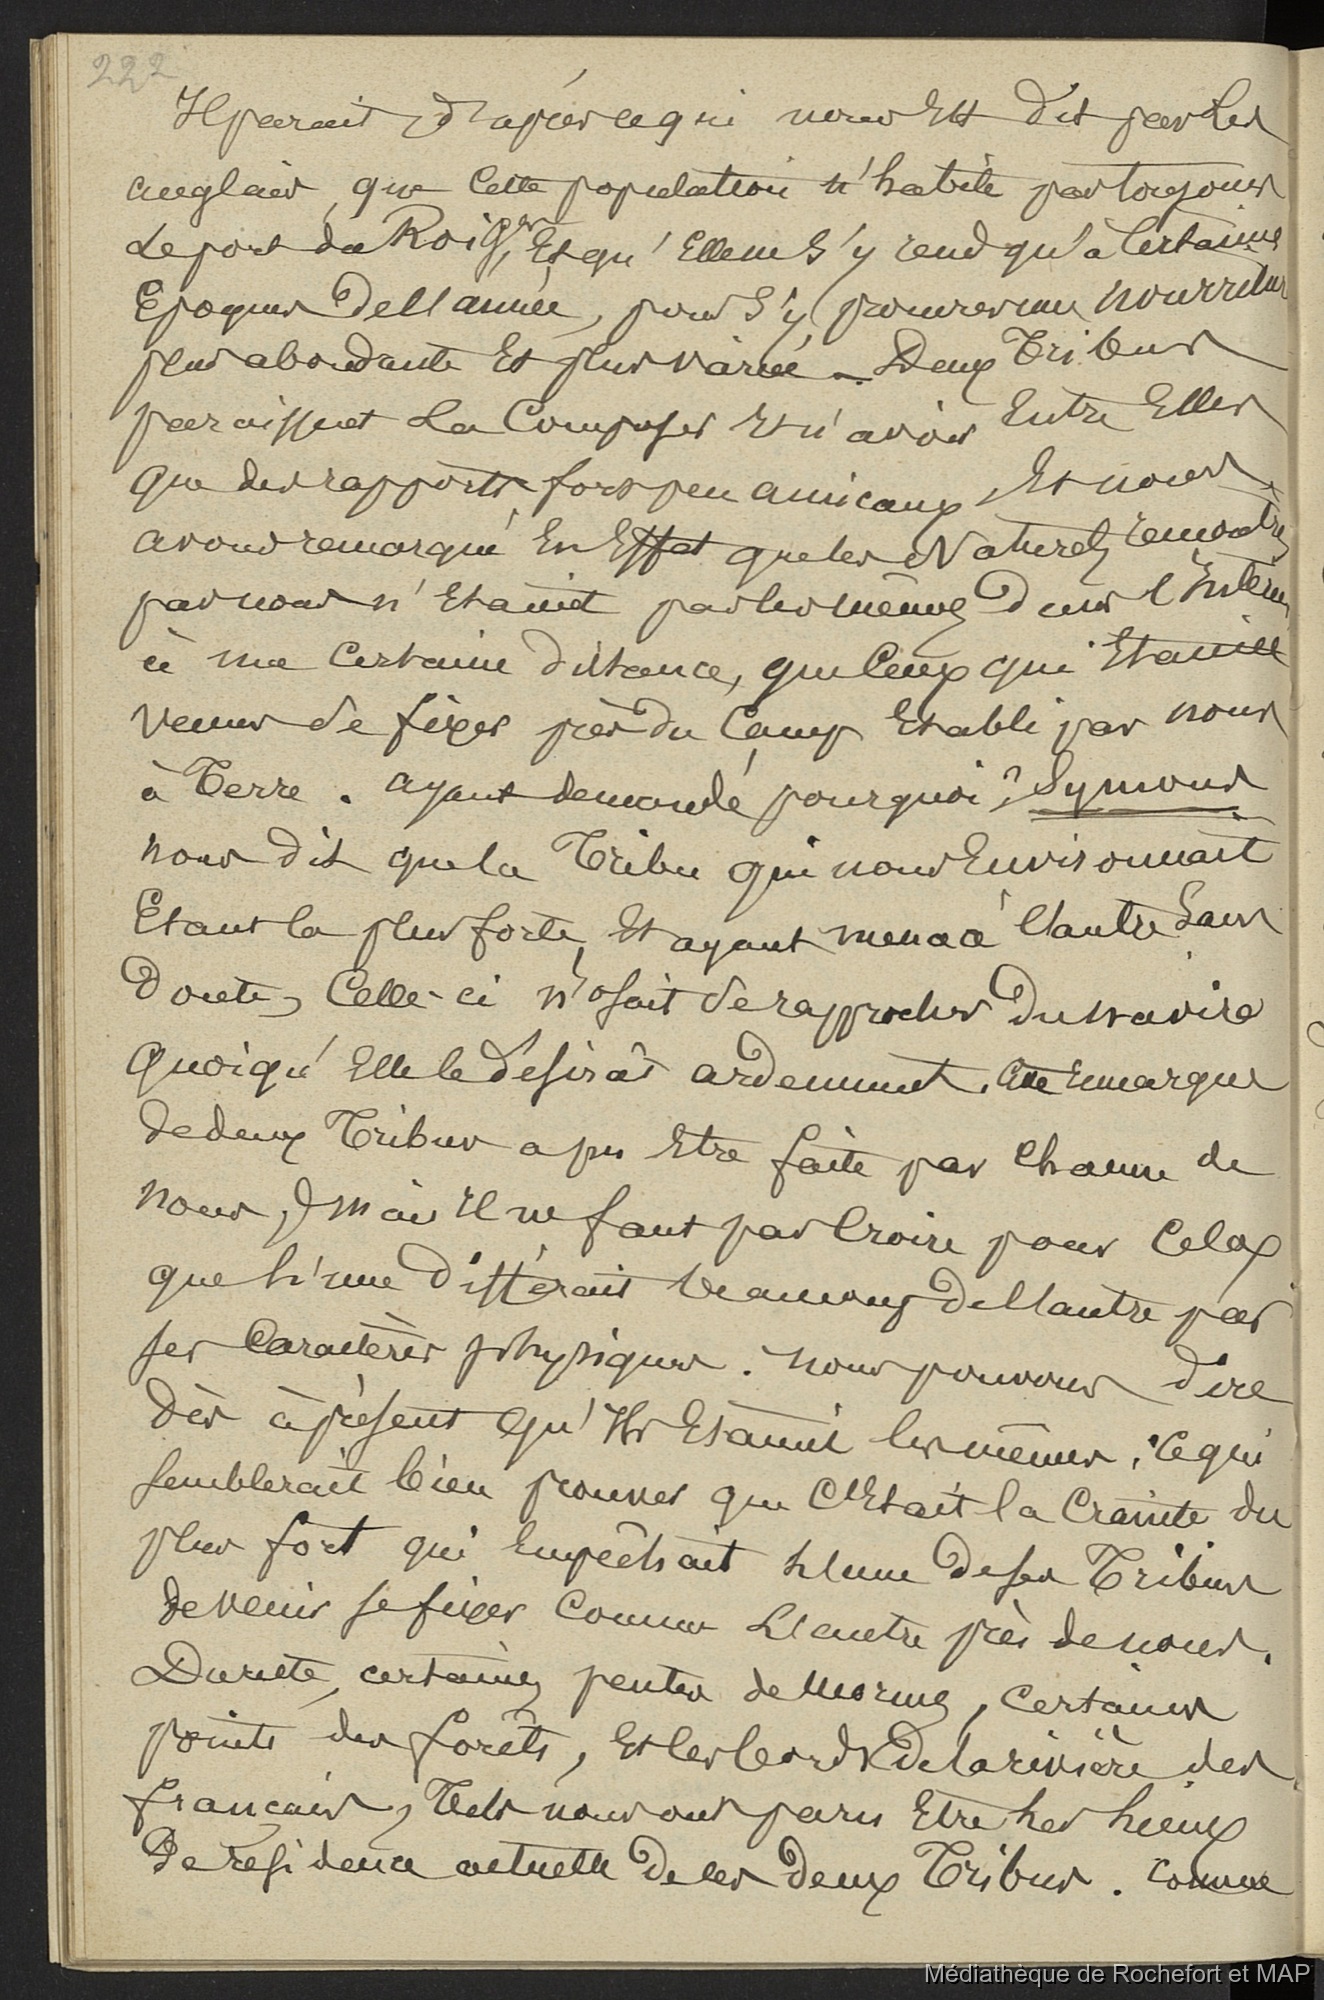 222
Il parait, d'après ce qui nous Est dit par Les
anglais, que Cette population n'habite pas toujours
Le port du Roi G.er, Et qu'Elle ne S'y rend qu'à Certaines
Epoques De l'année, pour S'y procurer une nourriture
plus abondante Et plus variée — Deux Tribus
paraissent La Composer Et n'avoir Entre Elles
que des rapports fort peu amicaux, Et nous
avons remarqué En Effet que les Naturels rencontrés
par nous n'Etaient pas les mêmes Dans l'Intérieur
à une Certaine distance, que Ceux qui Etaient
venus Se fixer près du Camp Etabli par nous
à Terre. ayant demandé pourquoi ? Symons
nous dit que la Tribu qui nous Environnait
Etant la plus forte, Et ayant menacé l'autre Sans
Doute, Celle-ci n'osait Se rapprocher Du navire
Quoiqu'Elle le Désirât ardemment. Cette remarque
de deux Tribus a pu Etre faite par Chacun de
nous, mais Il ne faut pas Croire pour Cela
que L'une Différait beaucoup De l'autre par
ses Caractères physiques. nous pouvons dire
Dès à présent qu'Ils Etaient les mêmes, Ce qui
semblerait bien prouver que C'Etait la Crainte du
plus fort qui Empêchait L'une De ses Tribus
de venir se fixer Comme L'autre près de nous.
Du reste, certaines pentes de Mornes, Certains
points des forêts, Et les bords De la rivière des
français, Tels nous ont paru Etre Les Lieux
De résidence actuelle De ces Deux Tribus. Comme
Médiathèque de Rochefort et MAP